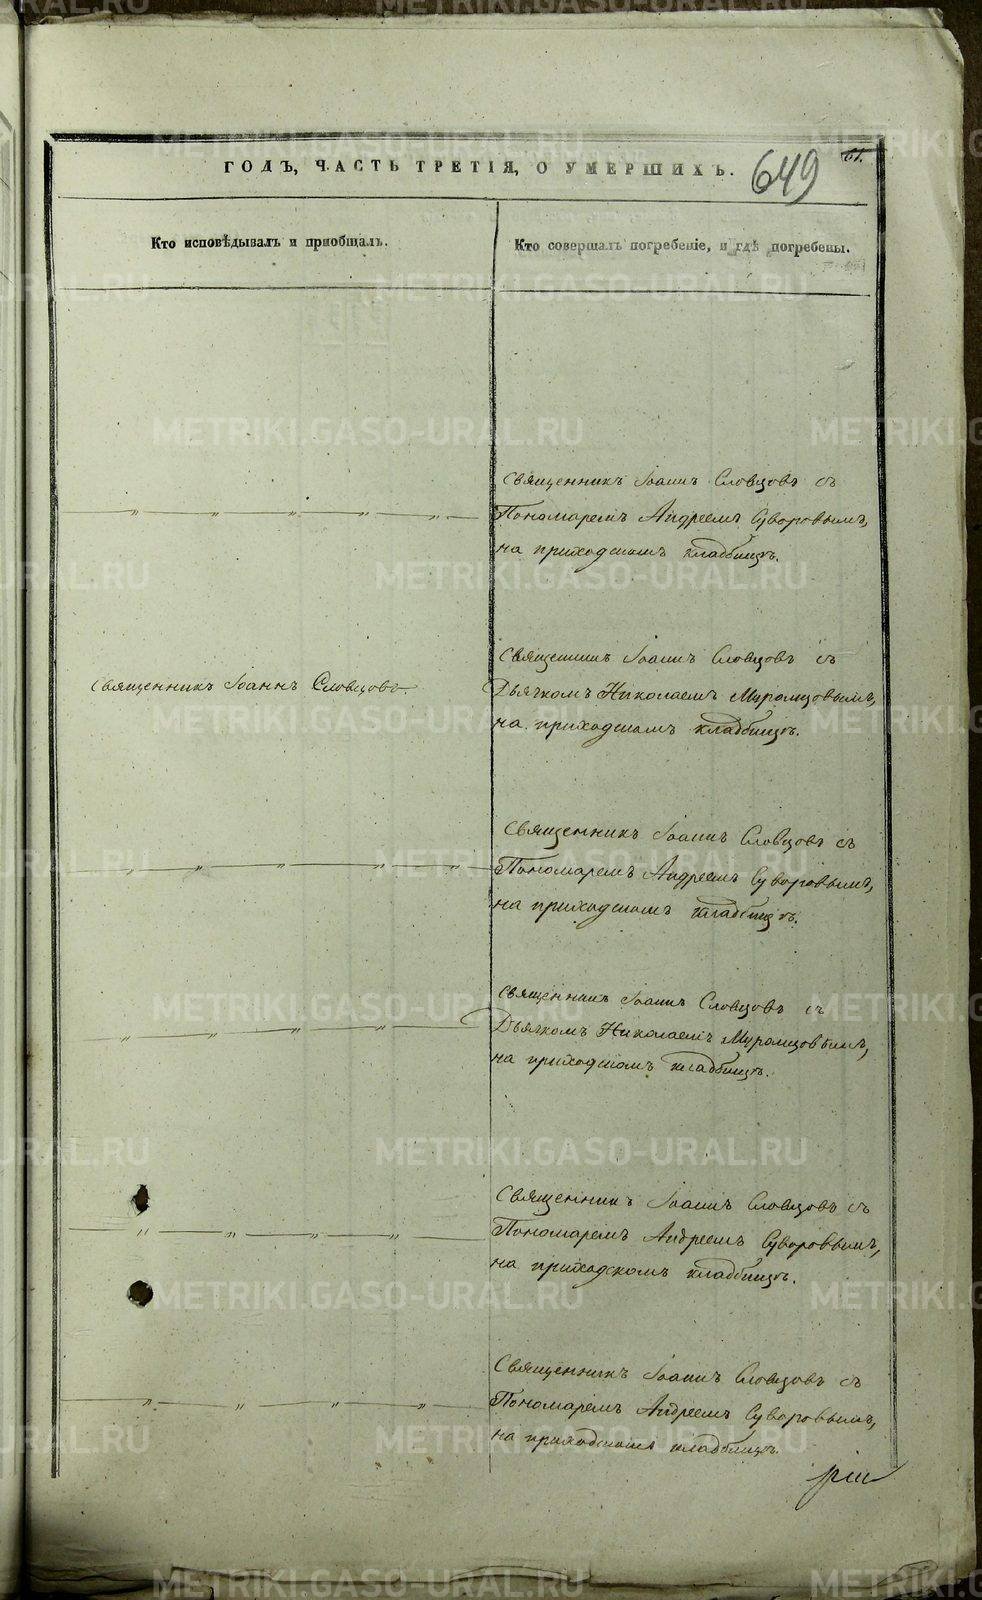 ГОДЪ, ЧАСТЬ ТРЕТІЯ, О УМЕРШИХЪ.
649
61.
Кто исповѣдывалъ и пріобщалъ.
Кто совершалъ погребеніе, и гдѣ погребены.
Священникъ Іоаннъ Словцовъ съ
— „ — „ — „ — „ — „ —
Пономаремъ Андреемъ Суворовымъ,
на приходскомъ кладбищѣ.
Священникъ Іоаннъ Словцовъ
Священникъ Іоаннъ Словцовъ съ
Дьячкомъ Николаемъ Муромцовымъ,
на приходскомъ кладбищѣ.
Священникъ Іоаннъ Словцовъ съ
— „ — „ — „ — „ — „ —
Пономаремъ Андреемъ Суворовымъ,
на приходскомъ кладбищѣ.
Священникъ Іоаннъ Словцовъ съ
— „ — „ — „ — „ —
Дьячкомъ Николаемъ Муромцовымъ,
на приходскомъ кладбищѣ.
Священникъ Іоаннъ Словцовъ съ
— „ — „ — „ — „ —
Пономаремъ Андреемъ Суворовымъ,
на приходскомъ кладбищѣ.
Священникъ Іоаннъ Словцовъ съ
— „ — „ — „ — „ —
Пономаремъ Андреемъ Суворовымъ,
на приходскомъ кладбищѣ.
METRIKI.GASO-URAL.RU